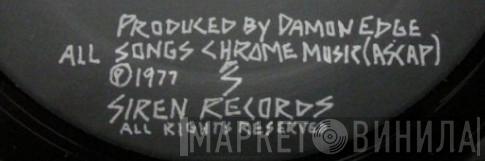 PRODUCED BY DAMON EDGE
ALL SONGS CHROME MUSIC (ASCAP)
℗1977 S
SIREN RECORDS
ALL RIGHTS RESERVED
МАРКЕТ
ВИНИЛА